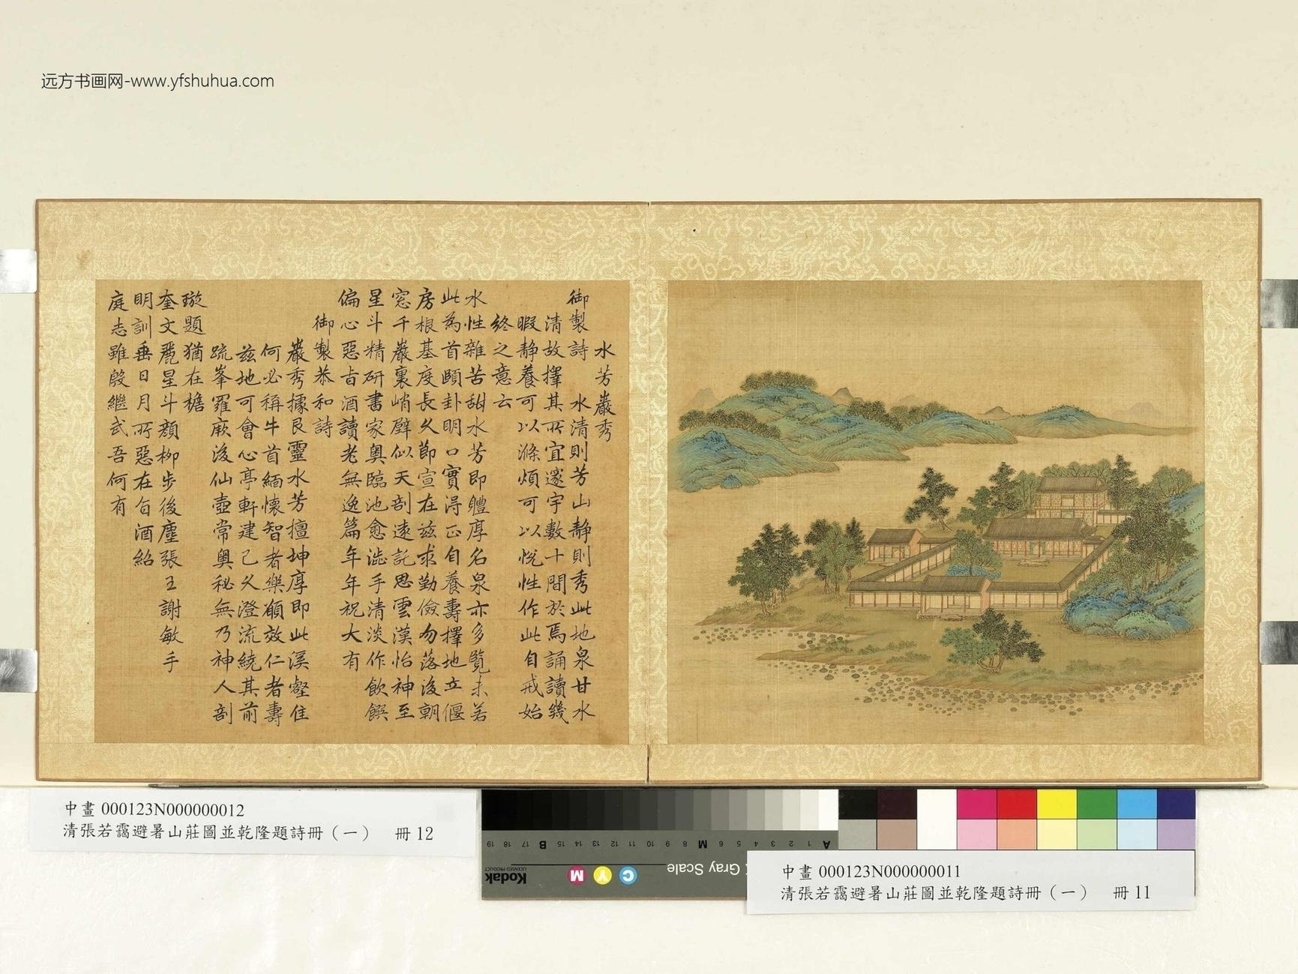 远方书画网-www.yfshuhua.com
水芳巖秀
御製詩 水清則芳山靜則秀此地泉甘水
清故擇其所宜邃宇數十間於焉誦讀幾
暇靜養可以滌煩可以悅性作此自戒始
終之意云
水性雜苦甜水芳即體厚名泉亦多覽未若
此為首頤卦明口實得正自養壽擇地立偃
房根基度長久節宣在茲求勤儉勿落後朝
窓千巖裏峭壁似天剖遠託思雲漢怡神至
星斗精研書家奧臨池愈澁手清淡作飲饌
偏心惡旨酒讀老無逸篇年年祝大有
御製恭和詩
巖秀據艮靈水芳擅坤厚即此溪壑佳
何必稱牛首緬懷智者樂願效仁者壽
茲地可會心亭軒建已久澄流繞其前
疏峯羅厥後仙壺常奧秘無乃神人剖
璇題猶在檐
奎文麗星斗顏柳步後塵張王謝敏手
明訓垂日月所惡在旨酒紹
庭志雖殷繼武吾何有
中畫 000123N000000012
清張若靄避暑山莊圖並乾隆題詩冊（一） 冊 12
中畫 000123N000000011
清張若靄避暑山莊圖並乾隆題詩冊（一） 冊 11
Kodak
LICENSED PRODUCT
Gray Scale
C Y M
A 1 2 3 4 5 6 M 8 9 10 11 12 13 14 15 B 17 18 19